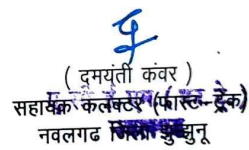 ( दमयंती कंवर )
सहायक कलक्टर (फास्ट-ट्रेक)
नवलगढ झुझुनू